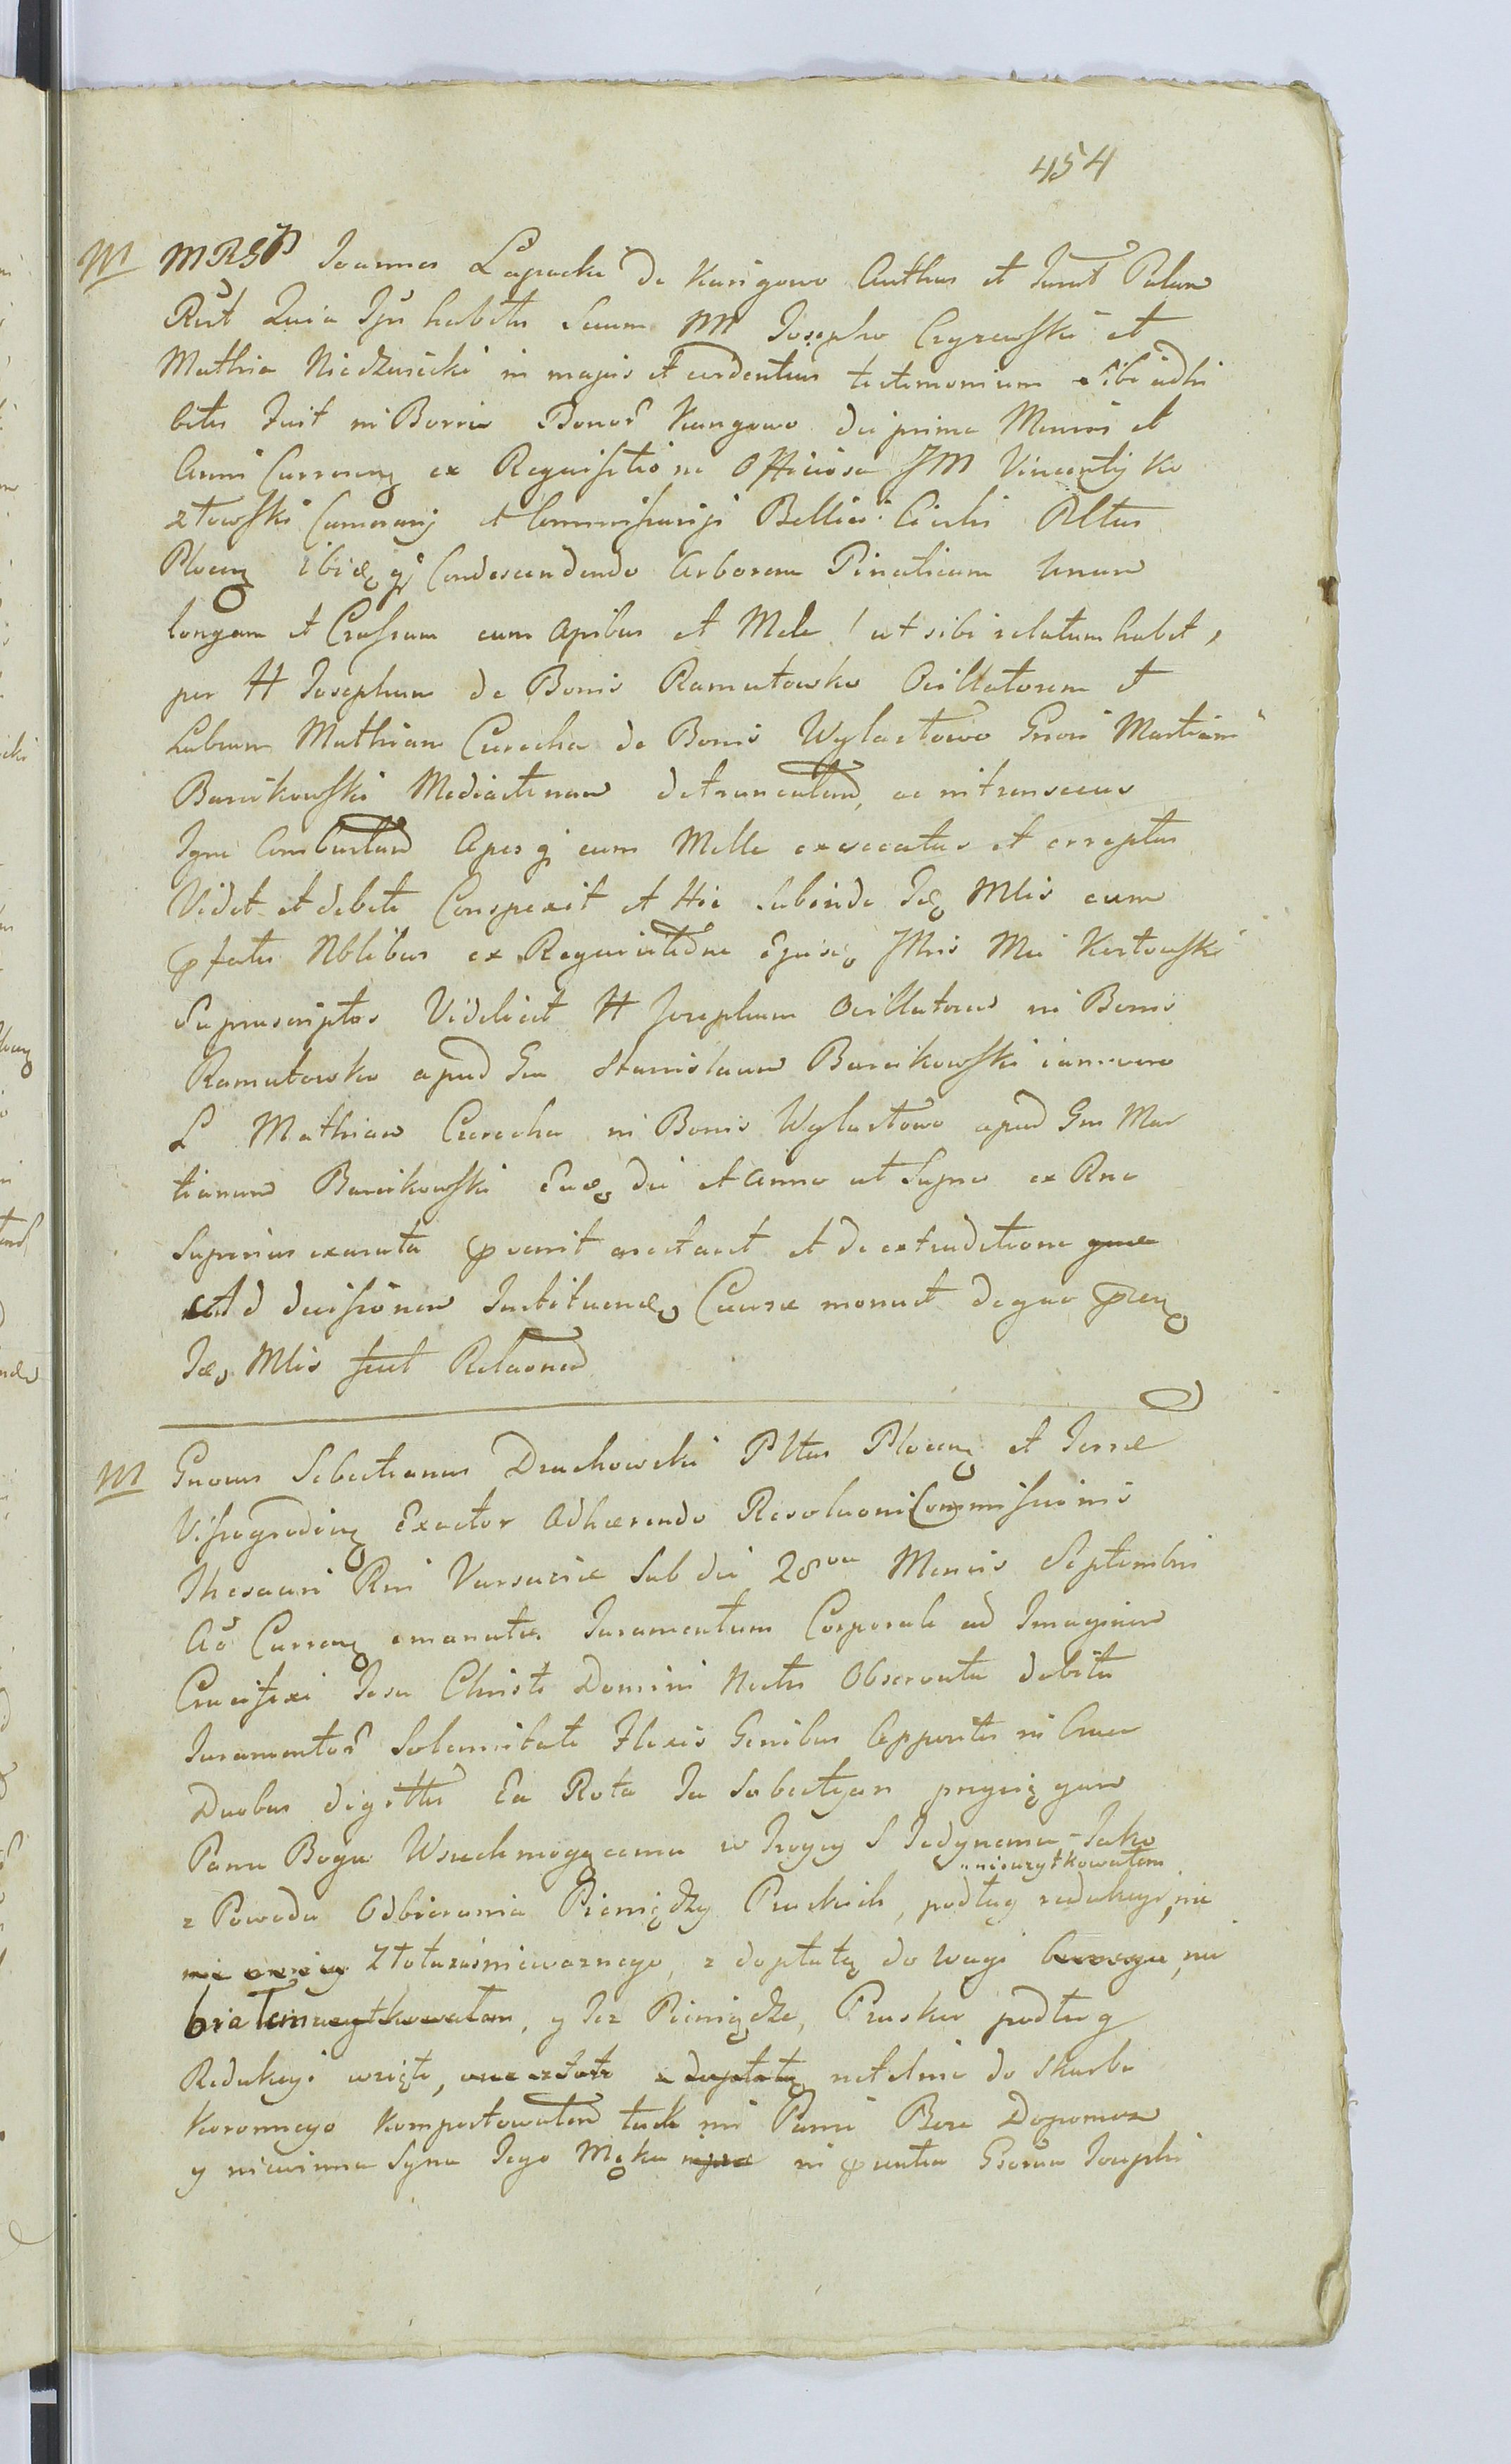 454
M MRSP Joannes Łapacki de Karigowo Authus et Jurat Palam
Rcit Quia Ipse habitis Secum NN Josepho Czyzewski et
Mathia Niedzwiecki in majus et evidentius testimonium sibi adhi
bitis fuit in Borris Bonor Karigowo die prima Mensis et
Anni Curren ex Requisitione Officiosa JM Vincentij Ko
ztowski Camerarij et Commissarij Bellici Civilis Pltus
Plocen ibidem q Condescendendo Arborem Pineticam unam
longam et Crassam cum apibus et Mele ! ut sibi relatum habet,
per H Josephum de Bonis Ramutowko Oeillatorem et
Labum Mathiam Curocha de Bonis Wylactowo Gnosi Martiani
Barcikowski Mediastinum detruncatam, ac intrinsecus
Igne Combustam Apes q cum Melle exsiccatas et erreptas
Vidit et debite Conspexit et Hic Subinde Id Mlis cum
pfatis Nblibus ex Requisitione Ejusd JMis Mci Koztowski
Suprascriptos Videlicet H Josephum Oeillatorem in Bonis
Ramutowko apud Gm Stanislaum Barcikowski iam vero
L Mathiam Curocha in Bonis Wylactowo apud Gm Mar
tianum Barcikowski Eod die et Anno ut Supra ex Rne
Superius exarata pvenit arestavit et de extraditione quae
Ad decisionem Instituendo Causae monuit de quo pren
Id Mlis fecit Relaonem
M Gnosus Sebastianus Drachowski Pltus Plocen et Terrae
Vissogrodien Exactor Adhaerendo Resolutioni Commissionis
Thesauri Rni Varsaviae Sub die 28va Mensis Septembris
Ao Curren emanatae Juramentum Corporale ad Imaginem
Crucifixi Jesu Christi Domini Nostri Observata debita
Juramentor Solemnitate Flexis Genibus Appositis in Cruce
Duobus digittis Ea Rota Ja Sebestyan przysięgam
Panu Bogu Wszechmogącemu w Troycy S Jedynemu - Jako
nieuzytkowałem
z Powodu Odbierania Pieniędzy Pruskich, podług redukcyi, nie
Złota zaśniewaznego, z dopłatą do wagi, nie
brałem, y Jez Pieniądze, Pruskie podług
Redukcyi wzięte, z dopłatą netelnie do Skarbu
Koronnego komportowałem tack mi Panie Boze Dopomoz
y niewinna Syna Jego Męka in psentia Gsorum Josephi